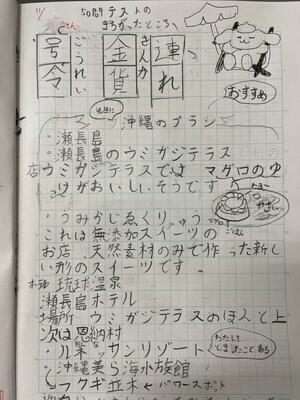 50問テストの
まちがったところ
さんか
ごうれい
つ
連れ
金貨
号令
おすすめ
先生に
沖縄のプラン
・瀬長島
・瀬長島のウミカジテラス
店ウミカジテラスでは マグロのユ
けがおいしいそうです
・うみかじゑくり、う
これは無添加スイーツの
お店。天然素材のみで作った新し
い形のスイーツです。
マグロ
ごはん
琉球温泉
瀬長島ホテル
場所 ウミカジテラスのほんと上
次は恩納村
わたしも
とまったことある
ルネッサンリゾート
沖縄美ら海水族館
フクギ並木←パワースポット